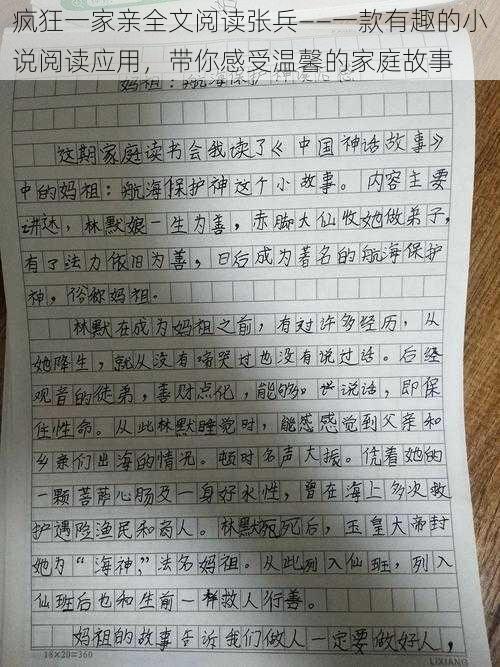 疯狂一家亲全文阅读张兵——一款有趣的小
说阅读应用，带你感受温馨的家庭故事
妈祖：航海保护神读后感
这期家庭读书会我读了《中国神话故事》
中的妈祖：航海保护神这个小故事。内容主要
讲述，林默娘一生为善，赤脚大仙收她做弟子，
有了法力依旧为善，日后成为著名的航海保护
神，俗称妈祖。
林默在成为妈祖之前，有对许多经历，从
她降生，就从没有啼哭过也没有说过话。后经
观音的徒弟，善财点化，能够说话，即保
住性命。从此林默睡觉时，能感感觉到父亲和
乡亲们出海的情况。顿时名声大振。凭着她的
一颗菩萨心肠及一身好水性，曾在海上多次救
护遇险渔民和商人。林默死后，玉皇大帝封
她为“海神”，法名妈祖。从此列入仙班，列入
仙班后也和生前一样救人行善。
妈祖的故事告诉我们做人一定要做好人，
18×20=360
LIXIANG